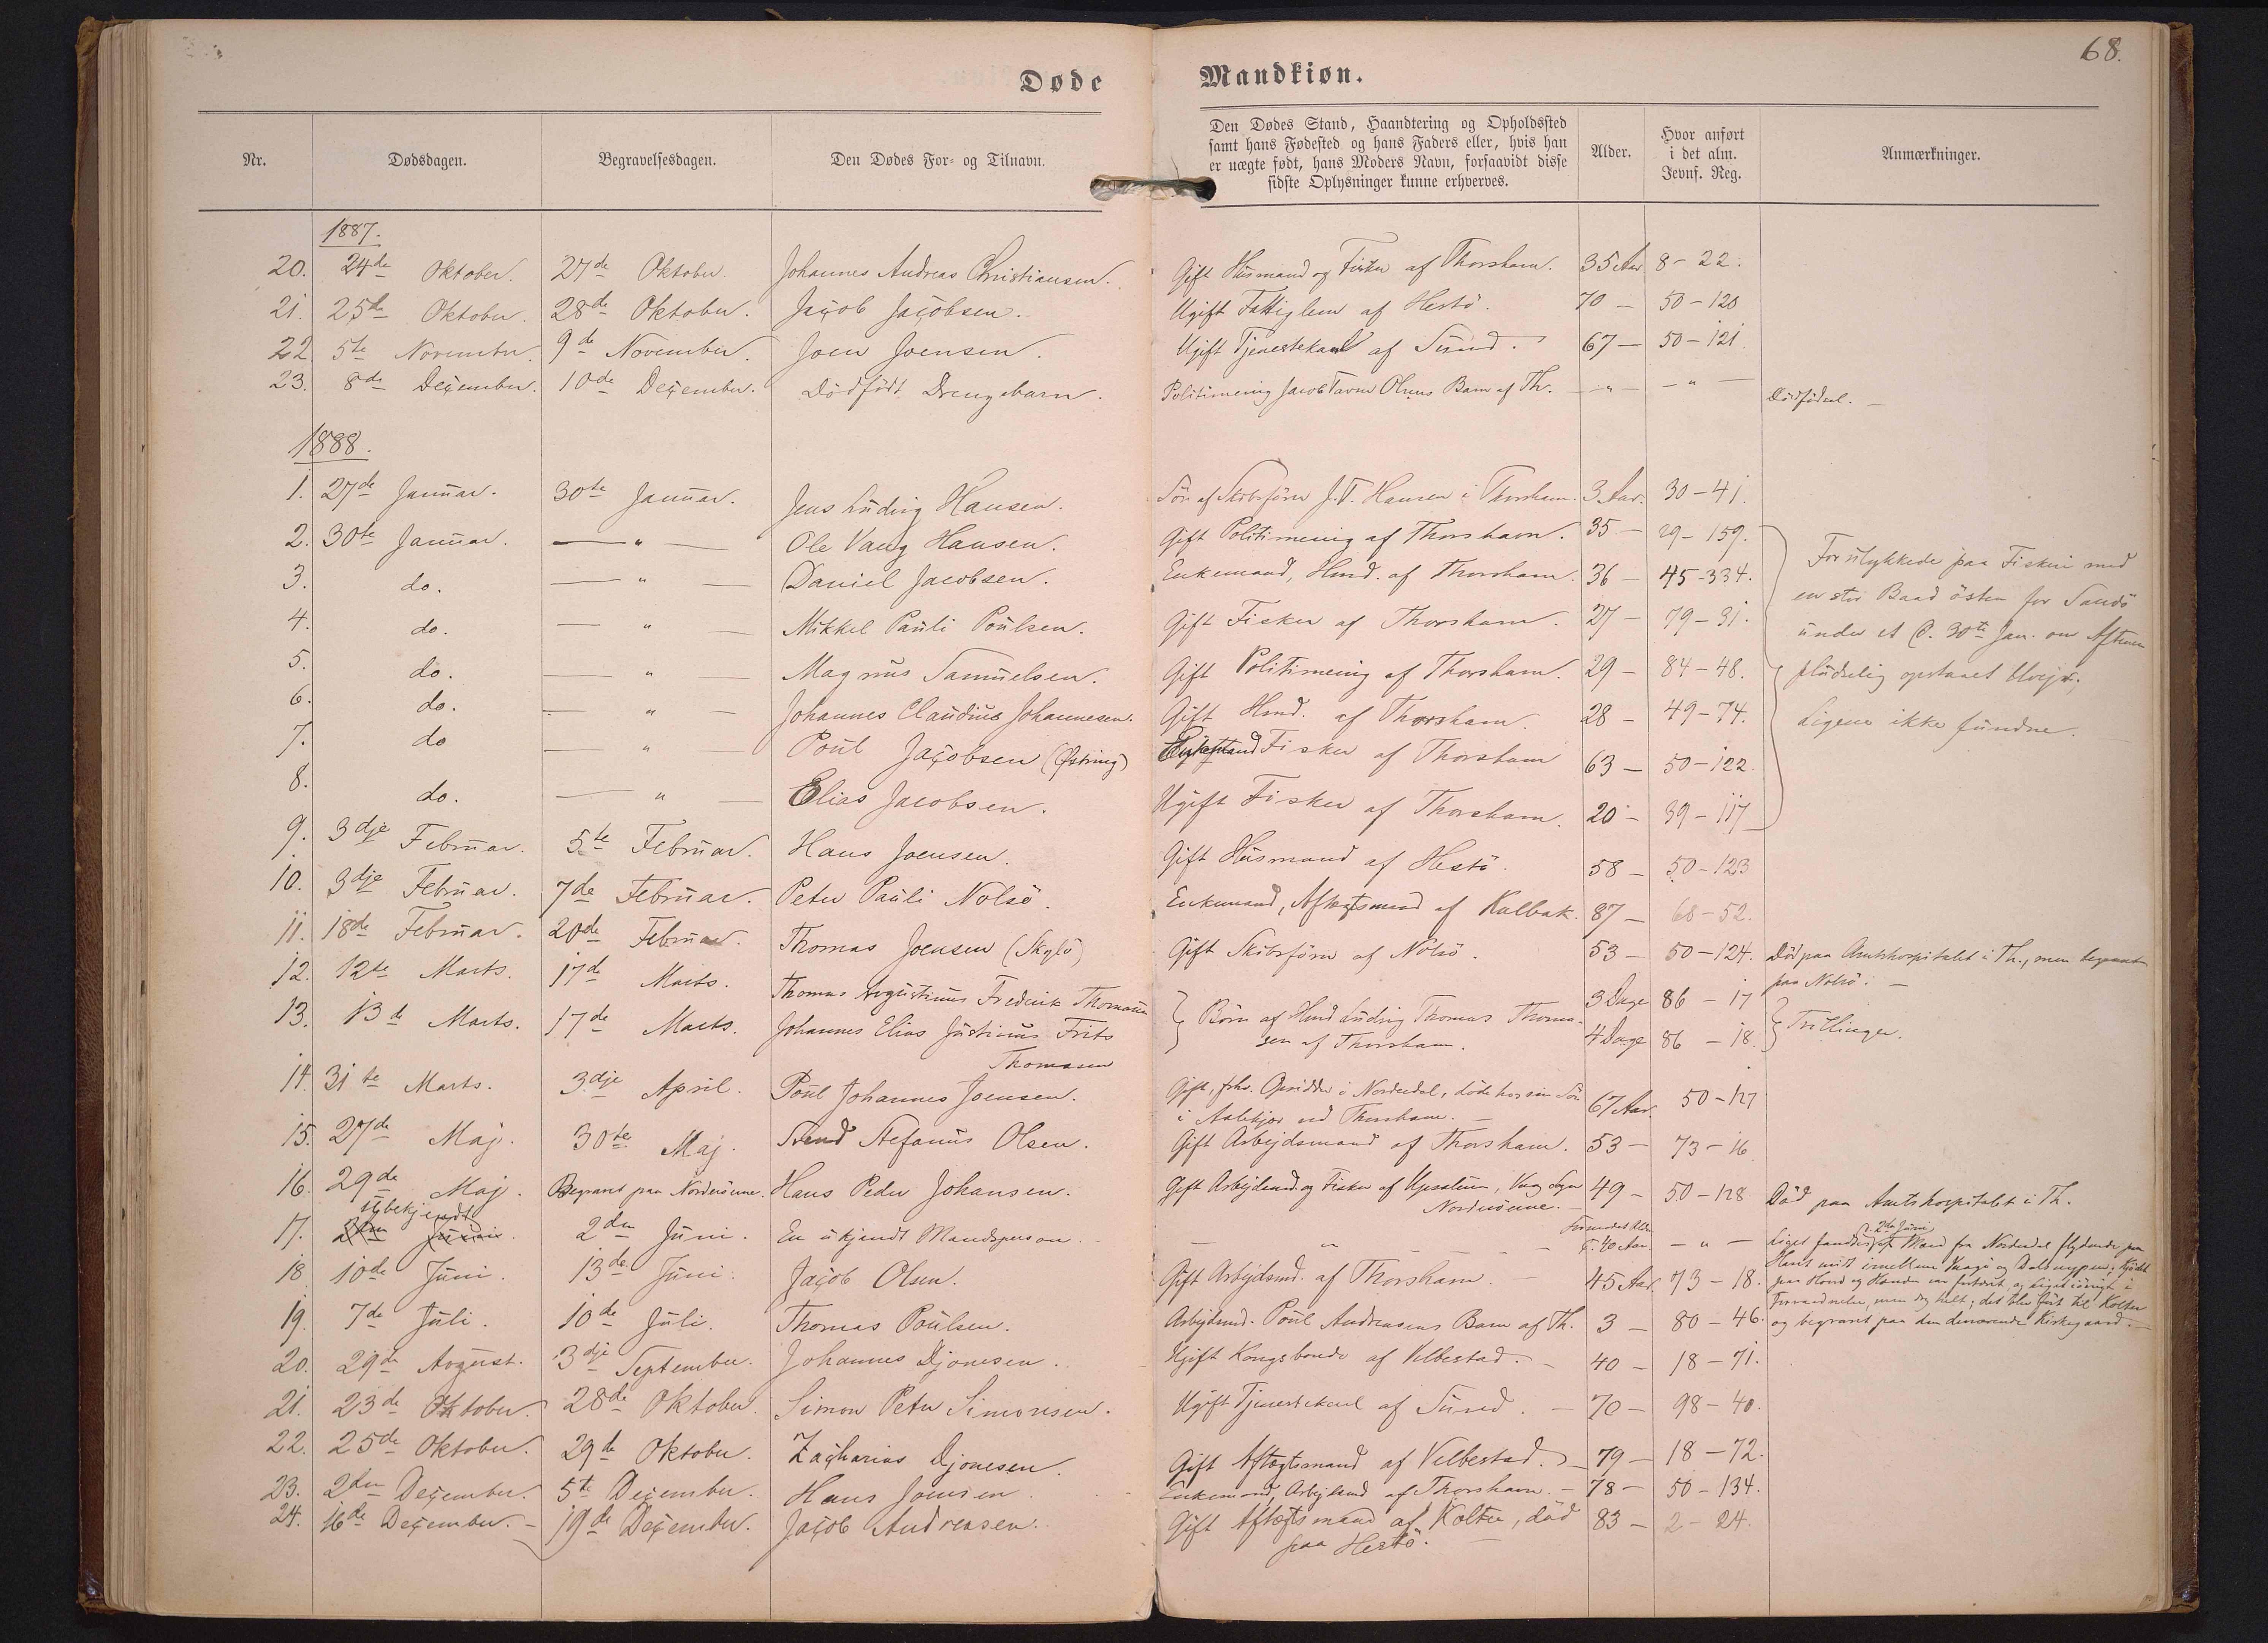 68.
Døde Mandkiøn.
Nr. Dødsdagen. Begravelsesdagen. Den Dødes For- og Tilnavn.
Den Dødes Stand, Haandtering og Opholdssted
samt hans Fødested og hans Faders eller, hvis han
er uægte født, hans Moders Navn, forsaavidt disse
sidste Oplysninger kunne erhverves.
Alder.
Hvor anført
i det alm.
Jevnf. Reg.
Anmærkninger.
1887.
20. 24de Oktober. 27de Oktober Johannes Andreas Christiansen. Gift Husmand og Fisker af Thorshavn. 35 Aar 8-22.
21. 25de Oktober. 28de Oktober. Jacob Jacobsen. Ugift Fattiglem af Hestö. 70 - 50-120
22 5te November. 9de November. Joen Joensen. Ugift Tjenestekarl af Sund. 67 - 50-121.
23. 8de December. 10de December. Dödfödt Drengebarn. Politimenig Jacob Olsens Barn af Th. - " - - " - Dödfödsel.
1888.
1. 27de Januar. 30te Januar. Jens Ludvig Hansen. Sön af Skibsförer J. T. Hansen i Thorshavn. 3 Aar. 30-41.
2. 30te Januar. - " - Ole Vang Hansen. Gift Politimenig af Thorshavn. 35 - 29-159.
3. do. - " - Daniel Jacobsen. Enkemand, Hmd. af Thorshavn. 36 - 45-334.
4. do. - " - Mikkel Pauli Poulsen. Gift Fisker af Thorshavn. 27 - 79-31.
5. do. - " - Magnus Samuelsen. Gift Politimenig af Thorshavn. 29 - 84-48.
6. do. - " - Johannes Claudius Johannesen. Gift Hmd. af Thorshavn. 28 - 49-74.
7. do - " - Poul Jacobsen (Östring) Fisker af Thorshavn 63 - 50-122.
8. do. - " - Elias Jacobsen. Ugift Fisker af Thorshavn. 20 - 39-117
Forulykkede paa Fiskeri med
en stor Baad östen for Sandö
under et d. 30te Jan. om Aftenen
pludselig opstaaet Uvejr;
Ligene ikke fundne.
9. 3dje Februar. 5te Februar. Hans Joensen. Gift Husmand af Hestö. 58 - 50-123
10. 3dje Februar. 7de Februar. Peter Pauli Nolsö. Enkemand, Aftægtsmand af Kalbak. 87 - 68-52.
11. 18de Februar. 20de Februar. Thomas Joensen (Skylö) Gift Skibsförer af Nolsö. 53 - 50-124. Död paa Amtshospitalet i Th., men begravet
paa Nolsö.
12. 12te Marts. 17de Marts. Thomas Augustinus Frederik Thomasen 3 Dage 86-17
13. 13de Marts. 17de Marts. Johannes Elias Justinus Frits
Thomasen
Börn af Hmd Ludvig Thomas Thoma-
sen af Thorshavn. 4 Dage 86-18. Tvillinger.
14. 31te Marts. 3dje April. Poul Johannes Joensen. Gift, fhv. Opsidder i Norderdal, döde hos sin Sön
i Aalekjær ved Thorshavn. 67 Aar. 50-127
15. 27de Maj. 30te Maj. Svend Stefanus Olsen. Gift Arbejdsmand af Thorshavn. 53 - 73-16
16. 29de Maj. Begravet paa Norderöerne. Hans Peder Johansen. Gift Arbejdsmd. og Fisker af
Norderöerne. 49 - 50-128 Död paa Amtshospitalet i Th.
17. ubekjendt 2den Juni. 2den Juni. En ukjendt Mandsperson. - " - Formodet Alder
c. 40 Aar - " - Liget fandtes d. 2den Juni af Mænd fra Norderdal flydende paa
18. 10de Juni. 13de Juni. Jacob Olsen. Gift Arbejdsmd. af Thorshavn. 45 Aar. 73-18.
19. 7de Juli. 10de Juli. Thomas Poulsen. Arbejdsmd. Poul Andreasens Barn af Th. 3 - 80-46. og begravet paa den derværende Kirkegaard.
20. 29de August. 3dje September. Johannes Djonesen. Ugift Kongsbonde af Velbestad. 40 - 18-71.
21. 23de Oktober. 28de Oktober. Simon Peter Simonsen. Ugift Tjenestekarl af Sund. 70 - 98-40.
22. 25de Oktober. 29de Oktober. Zacharias Djonesen. Gift Aftægtsmand af Velbestad. 79 - 18-72.
23. 2den December. 5te December. Hans Joensen Enkemand, Arbejdsmd af Thorshavn. 78 - 50-134.
24. 16de December. 19de December. Jacob Andreasen. Gift Aftægtsmand af Kolter, död
paa Hestö. 83 - 2-24.